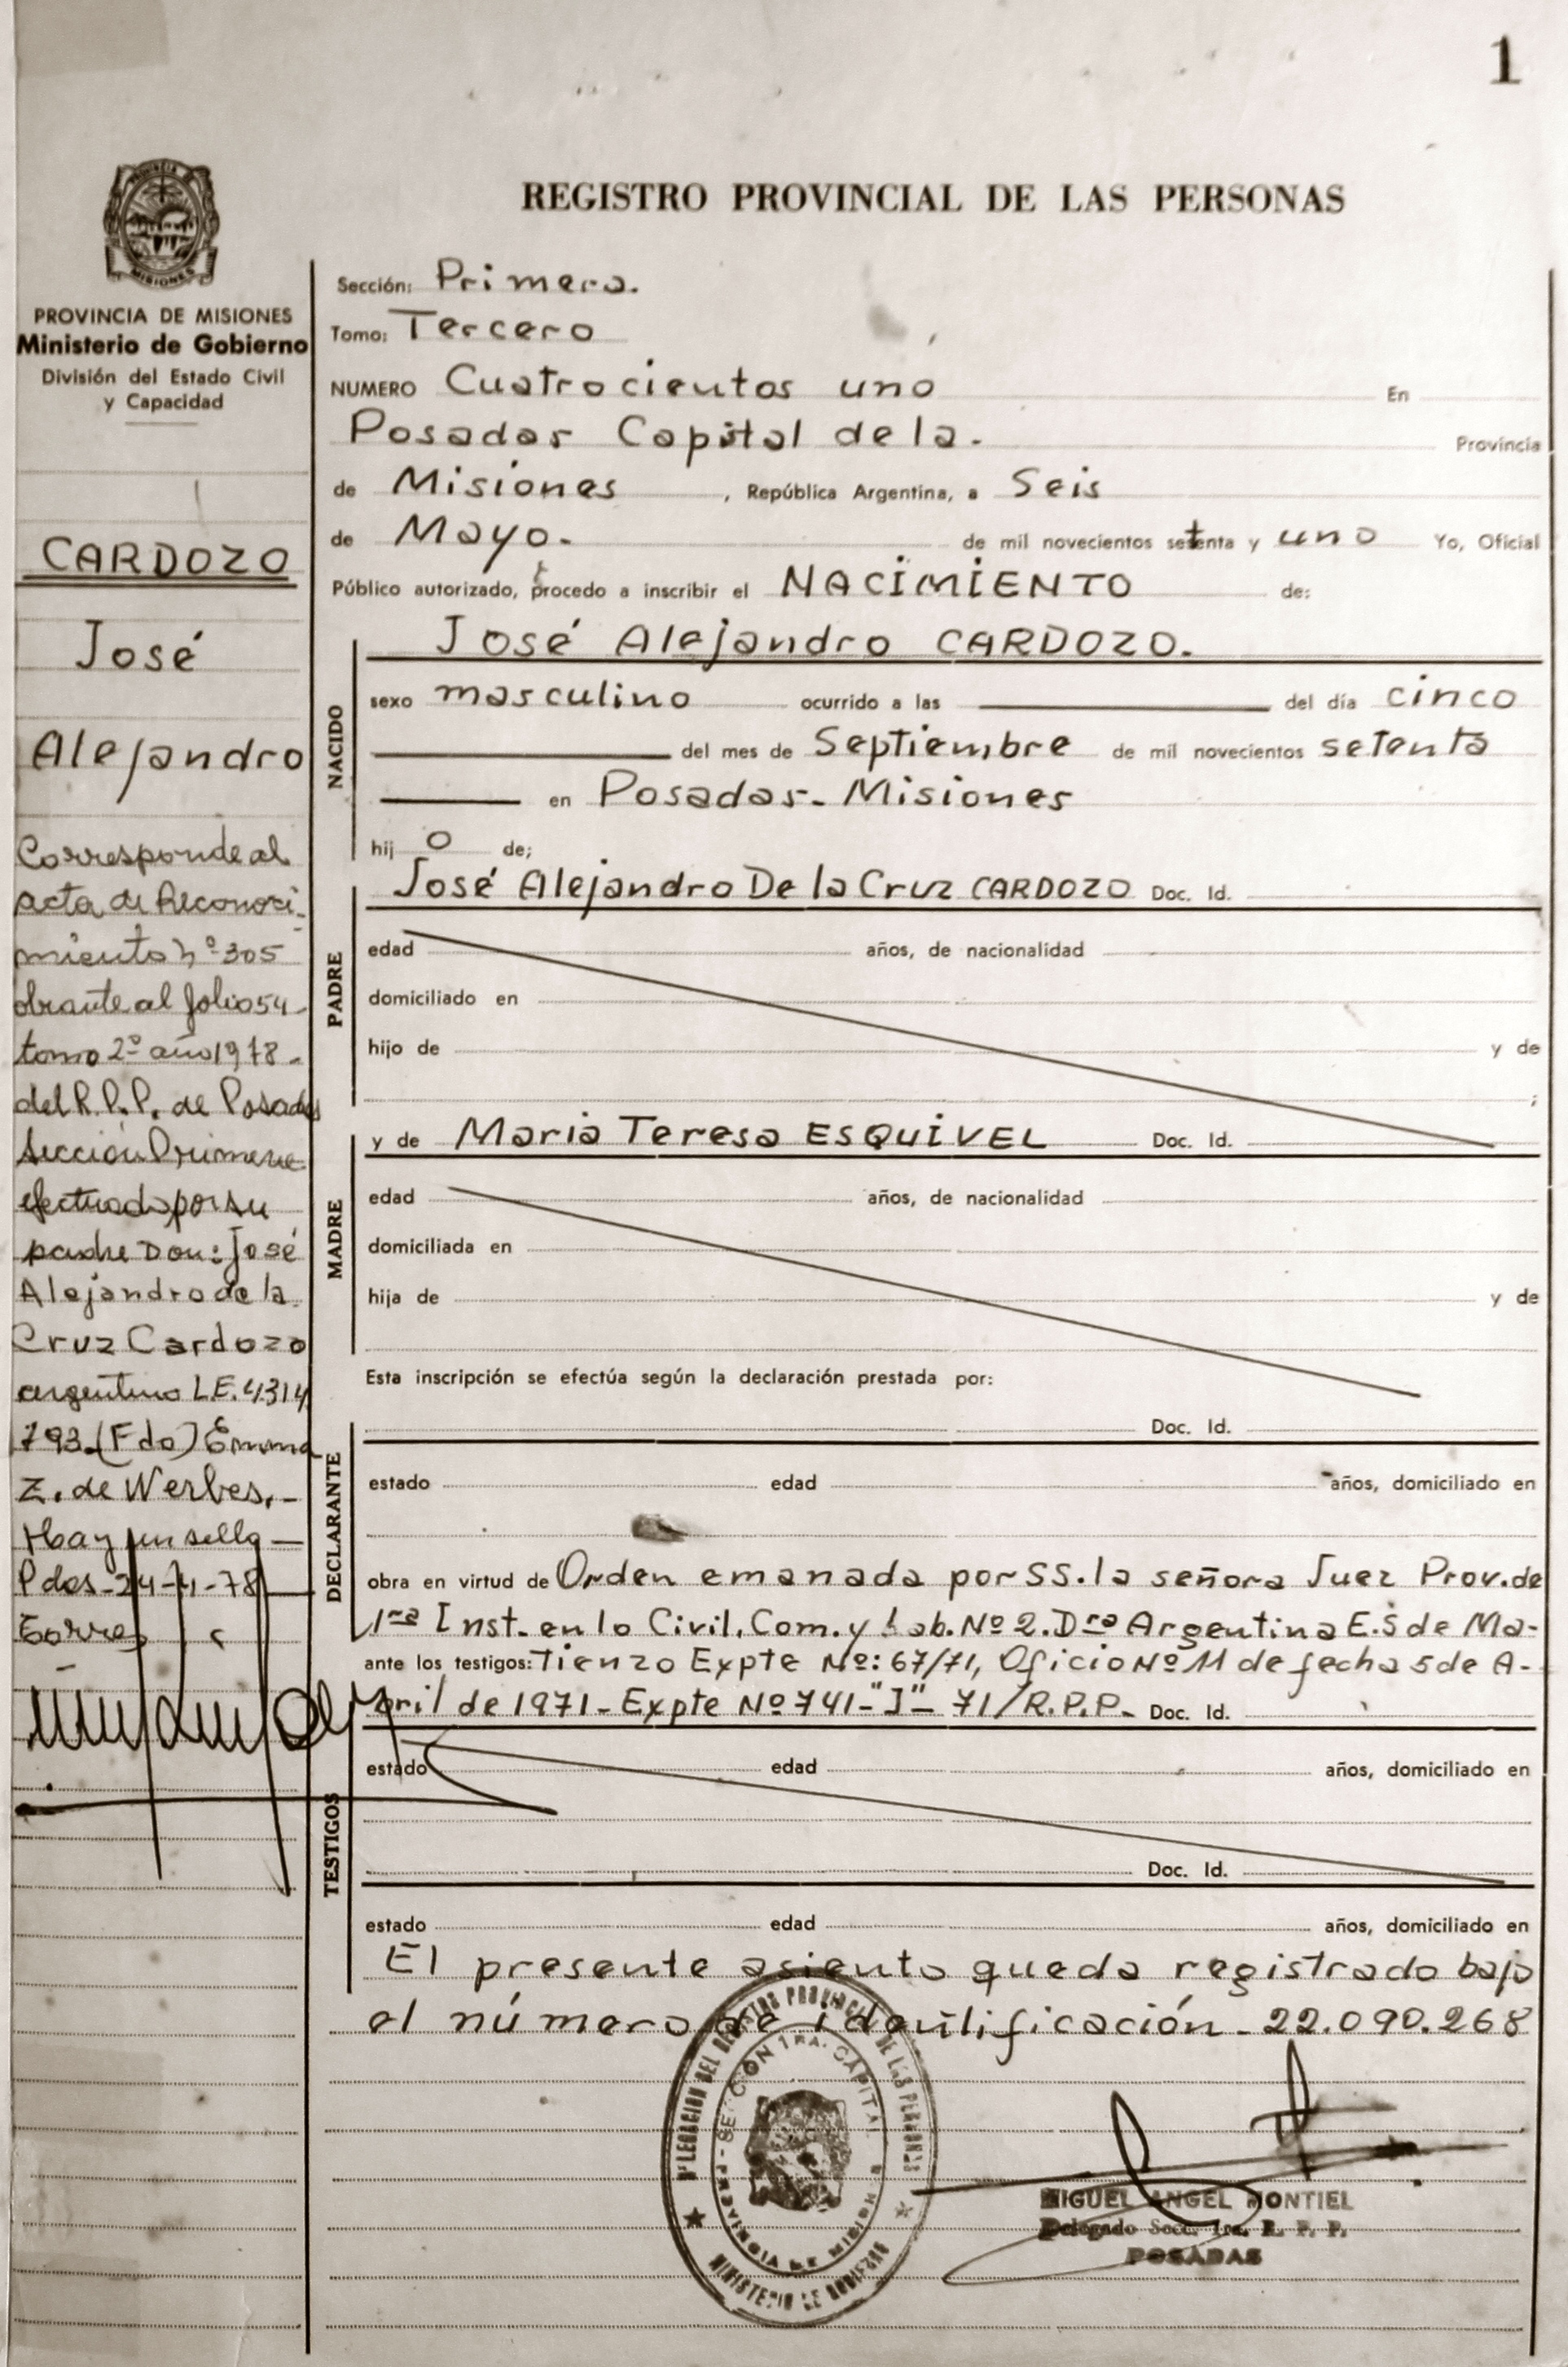 1
REGISTRO PROVINCIAL DE LAS PERSONAS
PROVINCIA DE MISIONES
Ministerio de Gobierno
División del Estado Civil
y Capacidad
CARDOZO
José
Alejandro
Corresponde al
acta de Reconoci-
miento nº 305
obrante al folio 54-
tomo 2º año 1978-
del R.P.P. de Posadas
Sección Primera
efectuado por su
padre Don: José
Alejandro de la
Cruz Cardozo
argentino L.E. 4314
793-(Fdo) Emma
Z. de Werbes.-
Hay un sello-
Pdas-24-4-78
Torres
Sección: Primera.
Tomo: Tercero
NUMERO Cuatrocientos uno En
Posadas Capital de la. Provincia
de Misiones, República Argentina, a Seis
de Mayo. de mil novecientos setenta y uno Yo, Oficial
Público autorizado, procedo a inscribir el NACIMIENTO de:
NACIDO
José Alejandro CARDOZO.
sexo masculino ocurrido a las del día cinco
del mes de Septiembre de mil novecientos setenta
en Posadas- Misiones
hij o de;
PADRE
José Alejandro De la Cruz CARDOZO Doc. Id.
edad años, de nacionalidad
domiciliado en
hijo de y de
;
MADRE
y de Maria Teresa ESQUIVEL Doc. Id.
edad años, de nacionalidad
domiciliada en
hija de y de
Esta inscripción se efectúa según la declaración prestada por:
DECLARANTE
Doc. Id.
estado edad años, domiciliado en
obra en virtud de Orden emanada por SS. la señora Juez Prov. de
1ra Inst. en lo Civil, Com. y Lab. Nº 2. Dra Argentina E. S de Ma-
ante los testigos: Tienzo Expte Nº: 67/71, Oficio Nº 11 de fecha 5 de A-
bril de 1971- Expte Nº 741-"J"- 71/R.P.P. Doc. Id.
TESTIGOS
estado edad años, domiciliado en
Doc. Id.
estado edad años, domiciliado en
El presente asiento queda registrado bajo
el número de identificación- 22.090.268
DELEGACION DEL REGISTRO PROVINCIAL DE LAS PERSONAS
SECCION 1RA. CAPITAL
PROVINCIA DE MISIONES
MINISTERIO DE GOBIERNO
MIGUEL ANGEL MONTIEL
Delegado Secc. 1ra. R. P. P.
POSADAS